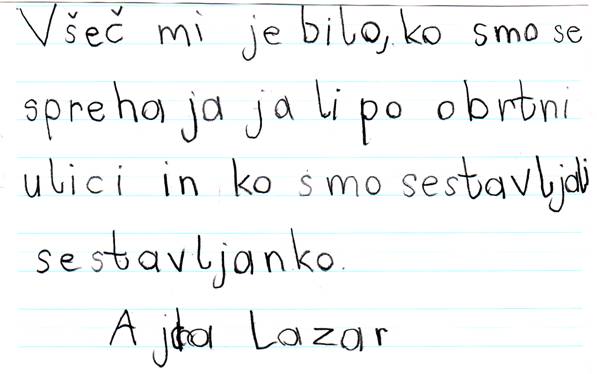 Všeč mi je bilo, ko smo se
spreha ja ja li po obrtni
ulici in ko smo sestavljali
sestavljanko.
Ajda Lazar